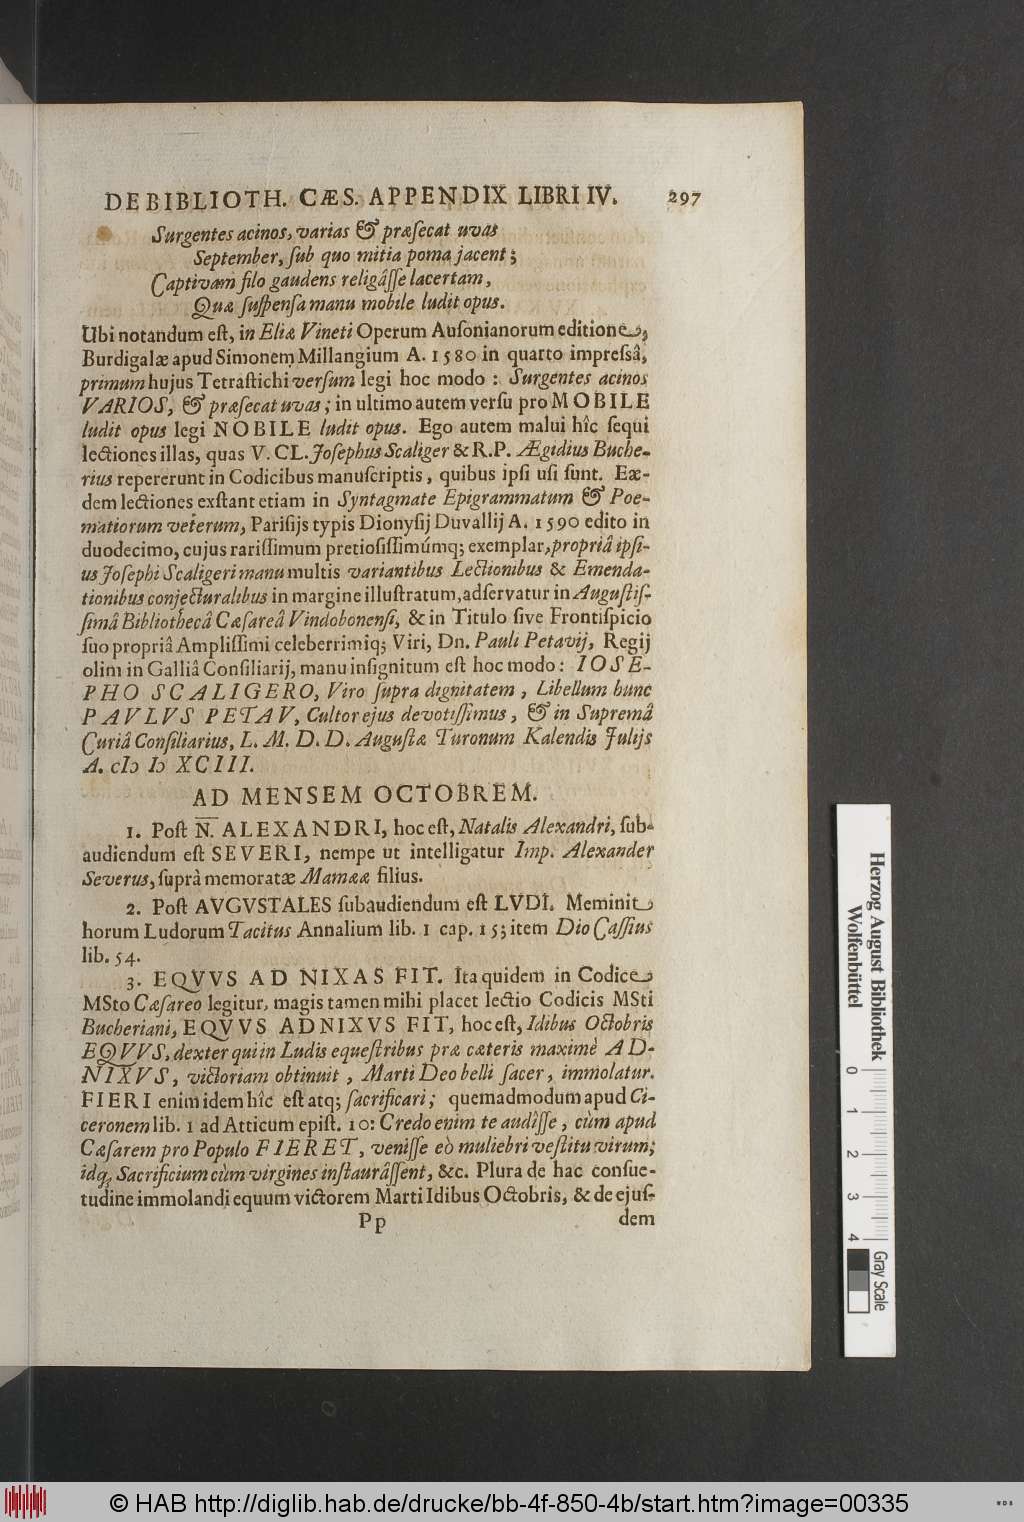 DE BIBLIOTH. CÆS. APPENDIX LIBRI IV. 297
Surgentes acinos, varias & præſecat uvas
September, ſub quo mitia poma jacent;
Captivam filo gaudens religâſſe lacertam,
Quæ ſuſpenſa manu mobile ludit opus.
Ubi notandum eſt, in Eliæ Vineti Operum Auſonianorum editione,
Burdigalæ apud Simonem Millangium A. 1580 in quarto impreſsâ,
primum hujus Tetraſtichi verſum legi hoc modo : Surgentes acinos
VARIOS, & præſecat uvas; in ultimo autem verſu pro MOBILE
ludit opus legi NOBILE ludit opus. Ego autem malui hîc ſequi
lectiones illas, quas V. CL. Joſephus Scaliger & R.P. Ægidius Buche-
rius repererunt in Codicibus manuſcriptis, quibus ipſi uſi ſunt. Eæ-
dem lectiones exſtant etiam in Syntagmate Epigrammatum & Poe-
matiorum veterum, Pariſijs typis Dionyſij Duvallij A. 1590 edito in
duodecimo, cujus rariſſimum pretioſiſſimúmq; exemplar, propriâ ipſi-
us Joſephi Scaligeri manu multis variantibus Lectionibus & Emenda-
tionibus conjecturalibus in margine illuſtratum, adſervatur in Auguſtiſ-
ſimâ Bibliothecâ Cæſareâ Vindobonenſi, & in Titulo ſive Frontiſpicio
ſuo propriâ Ampliſſimi celeberrimiq; Viri, Dn. Pauli Petavij, Regij
olim in Galliâ Conſiliarij, manu inſignitum eſt hoc modo: IOSE-
PHO SCALIGERO, Viro ſupra dignitatem, Libellum hunc
PAVLVS PETAV, Cultor ejus devotiſſimus, & in Supremâ
Curiâ Conſiliarius, L. M. D. D. Auguſtæ Turonum Kalendis Julijs
A. cIↄ Iↄ XCIII.
AD MENSEM OCTOBREM.
1. Poſt N̅. ALEXANDRI, hoc eſt, Natalis Alexandri, ſub-
audiendum eſt SEVERI, nempe ut intelligatur Imp. Alexander
Severus, ſuprà memoratæ Mamææ filius.
2. Poſt AVGVSTALES ſubaudiendum eſt LVDI. Meminit
horum Ludorum Tacitus Annalium lib. 1 cap. 15; item Dio Caſſius
lib. 54.
3. EQVVS AD NIXAS FIT. Ita quidem in Codice
MSto Cæſareo legitur, magis tamen mihi placet lectio Codicis MSti
Bucheriani, EQVVS ADNIXVS FIT, hoc eſt, Idibus Octobris
EQVVS, dexter qui in Ludis equeſtribus præ cæteris maximè AD-
NIXVS, victoriam obtinuit, Marti Deo belli ſacer, immolatur.
FIERI enim idem hîc eſt atq; ſacrificari; quemadmodum apud Ci-
ceronem lib. 1 ad Atticum epiſt. 10: Credo enim te audîſſe, cùm apud
Cæſarem pro Populo FIERET, veniſſe eò muliebri veſtitu virum;
idq; Sacrificium cùm virgines inſtaurâſſent, &c. Plura de hac conſue-
tudine immolandi equum victorem Marti Idibus Octobris, & de ejuſ-
Pp dem
Herzog August Bibliothek
Wolfenbüttel
0 1 2 3 4
Gray Scale
© HAB http://diglib.hab.de/drucke/bb-4f-850-4b/start.htm?image=00335